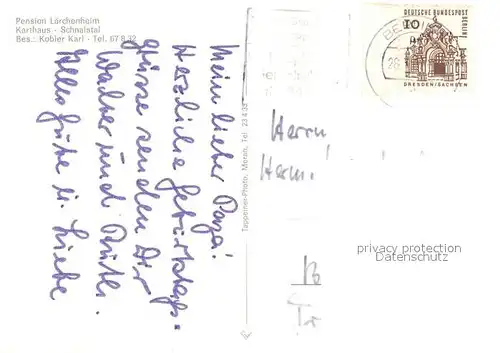 Pension Lärchenheim
Karthaus · Schnalstal
Bes.: Kobler Karl · Tel. 87 8 32
Mein lieber Papa!
Herzliche Geburtstags-
Grüsse senden Dir
Walter und
Alles Gute u. Liebe
Tappeiner-Photo, Meran, Tel. 23 4 35
DEUTSCHE BUNDESPOST
BERLIN
10
DRESDEN/SACHSEN
Herrn
Herm.
privacy protection
Datenschutz